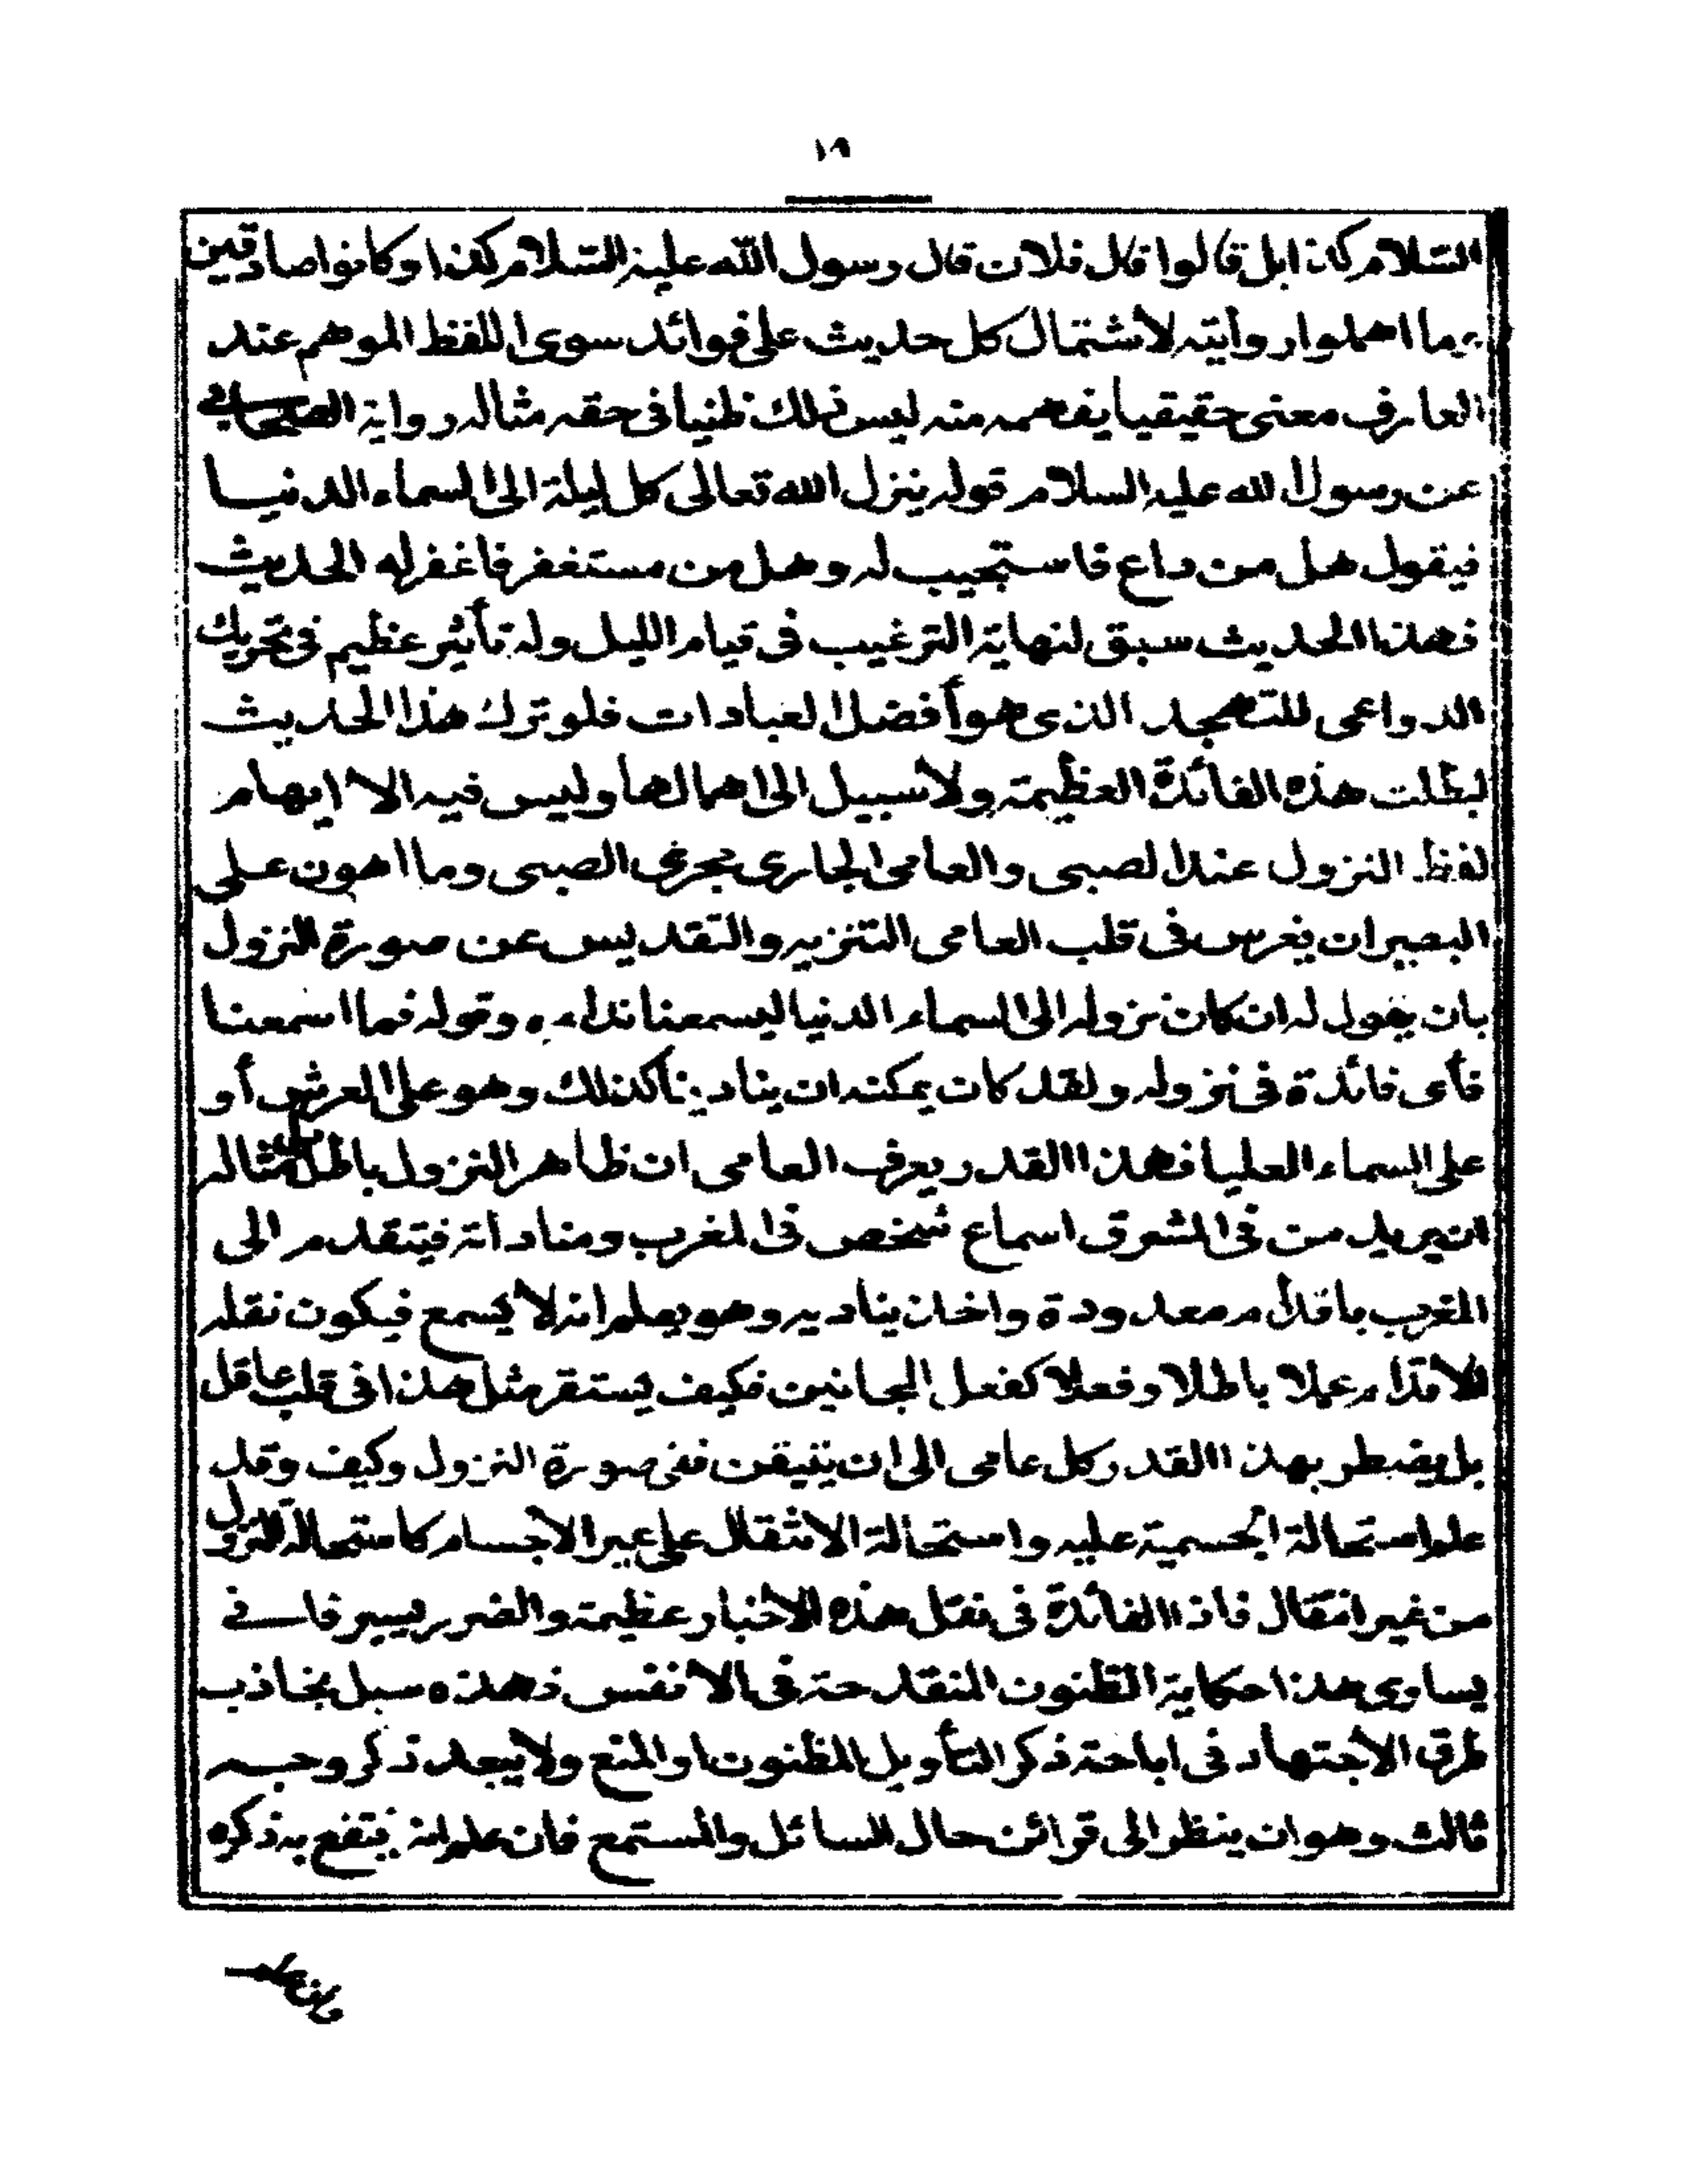 ١٩
السلام كذا بل قالوا قال فلان قال رسول الله عليه السلام كذا وكانوا صادقين
وما اهملوا روايته لأشتمال كل حديث على فوائد سوى اللفظ الموهم عند
العارف معنى حقيقيا يفهمه منه ليس ذلك ظنيا فى حقه مثاله رواية الصحابي
عن رسول الله عليه السلام قوله ينزل الله تعالى كل ليلة الى السماء الدنيا
فيقول هل من داع فاستجيب له وهل من مستغفر فاغفر له الحديث
فهذا الحديث سبق لنهاية الترغيب فى قيام الليل وله تأثير عظيم فى تحريك
الدواعى للتهجد الذى هو أفضل العبادات فلو ترك هذا الحديث
لبطلت هذه الفائدة العظيمة ولا سبيل الى اهمالها وليس فيه الا ايهام
لفظ النزول عند الصبى والعامى الجارى مجرى الصبى وما اهون على
البصير ان يغرس فى قلب العامى التنزيه والتقديس عن صورة النزول
بان يقول له ان كان نزوله الى السماء الدنيا ليسمعنا نداءه وقوله فما اسمعنا
فأى فائدة فى نزوله ولقد كان يمكنه ان ينادينا كذلك وهو على العرش أو
على السماء العليا فهذا القدر يعرف العامى ان ظاهر النزول باطل بل مثاله
ان يريد من فى المشرق اسماع شخص فى المغرب ومناداته فيتقدم الى
المغرب باقدام معدودة واخذ يناديه وهو يعلم انه لا يسمع فيكون نقله
للاقدام عملا باطلا وفعلا كفعل المجانين فكيف يستقر مثل هذا فى قلب عاقل
بل يضطر بهذا القدر كل عامى الى ان يتيقن نفى صورة النزول وكيف وقد
علم استحالة الجسمية عليه واستحالة الانتقال على غير الاجسام كاستحالة النزول
من غير انتقال فاذا الفائدة فى نقل هذه الاخبار عظيمة والضرر يسير فانى
يساوى هذا حكاية الظنون المنقدحة فى الانفس فهذه سبل تجاذب
طرق الاجتهاد فى اباحة ذكر التأويل المظنون او المنع ولا يبعد ذكر وجه
ثالث وهو ان ينظر الى قرائن حال السائل والمستمع فان علم انه ينتفع به ذكره